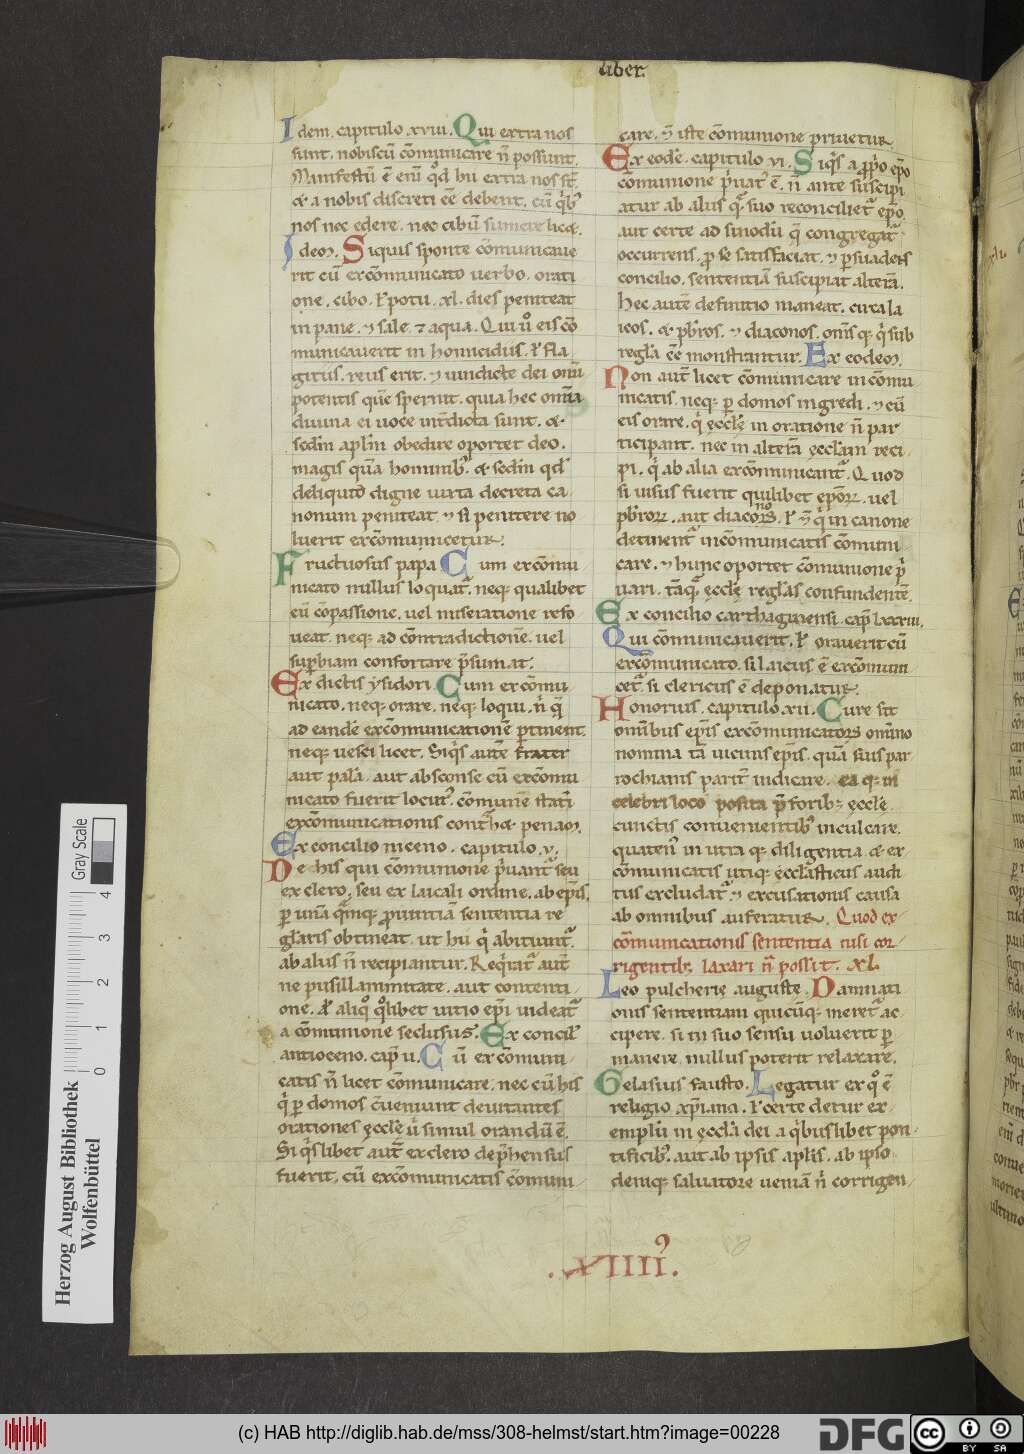 Liber.
Idem. capitulo .xviii. Qui extra nos
sunt. nobiscū cōmunicare n̄ possunt.
Manifestū ē eni̅ qd̄ hii extra nos st̄.
& a nobis discreti eē debent. cū qͥbꝰ
nos nec edere. nec cibū sumere lic&.
Idem. Siquis sponte cōmunicaue
rit cū excōmunicato uerbo. orati
one. cibo. ł potu. xl. dies peniteat
in pane. ⁊ sale. ⁊ aqua. Qui ů eis cō
municauerit in homicidiis. ł fla
gitiis. reus erit. ⁊ uindicte dei omi̅
potentis qui̅c spernit. quia hec om̅ia
diuina ei uoce int̄dicta sunt. &
sedm̄ aplm̄ obedire oportet deo.
magis quā hominibꝰ. & sedm̄ qd̄
deliquid digne iuxta decreta ca
nonum peniteat. ⁊ si penitere no
luerit excōmunicetur.
Fructuosus papa Cum excōmu
nicato nullus loquatᷣ. neqꝫ qualibet
eū cōpassione. uel miseratione refo
ueat. neqꝫ ad cōntradictionē. uel
suꝑbiam confortare p̄sumat.
Ex dictis ysidori Cum excōmu
nicato. neqꝫ orare. neqꝫ loqui. n̄ q̄
ad eandē excōmunicationē ꝑtinent.
neqꝫ uesci licet. Siqͥs autē frater
aut palā. aut absconse cū excōmu
nicato fuerit locutꝰ. cōmunē statī
excōmunicationis contͣh& penam.
Ex concilio niceno. capitulo .v.
De his qui cōmunione pͥuantᷣ seu
ex clero. seu ex laicali ordine. ab ep̄is.
ꝑ unā qͣmqꝫ ꝓuintiā sententia re
gl̄aris obtineat. ut hii qͥ abitiuntᷣ.
ab aliis n̄ recipiantur. Reqͥratᷣ aut̄
ne pusillanimitate. aut contenti
one. ł aliqͦ qͦlibet uitio ep̄i uideatᷣ
a cōmunione seclusus. Ex concil̄
antioceno. cap̄ ii. Cū excōmuni
catis n̄ licet cōmunicare. nec cū his
qͥ ꝑ domos c̄ueniunt deuitantes
orationes ęccl̄ę ů simul orandū ē.
Si qͥslibet aut̄ ex clero dep̄hensus
fuerit. cū excōmunicatis cōmuni
care. ⁊ iste cōmunione priuetur.
Ex eodē. capitulo .vi. Siqͥs a ꝓpͥo ep̄o
cōmunione pͥuatᷣ ē. n̄ ante suscipi
atur ab aliis qͣ suo reconcilietᷣ ep̄o.
aut certe ad sinodū q̄ congregatᷣ
occurrens. ꝓ se satisfaciat. ⁊ ꝑsuadens
concilio. sententiā suscipiat alterā.
Hec autē definitio maneat. circa la
icos. & p̄bros. ⁊ diaconos. om̅is qꝫ qͥ sub
regl̄a eē monstrantur. Ex eodem.
Non aut̄ licet cōmunicare incōmu
nicatis. neqꝫ ꝑ domos ingredi. ⁊ cū
eis orare. qͥ ęccl̄ę in oratione n̄ par
ticipant. nec in alterā ęccl̄am reci
pi. qͥ ab alia excōmunicantᷣ. Quod
si uisus fuerit quilibet ep̄orꝫ. uel
p̄brorꝫ. aut diaconorꝫ. ł ⁊ qͥ in canone
detinentᷣ incōmunicatis cōmuni
care. ⁊ hunc oportet cōmunione pͥ
uari. tāqͣ ęccl̄ę regl̄as confundentē.
Ex concilio carthaginensi. cap̄ lxxiii.
Qui cōmunicauerit. ł orauerit cū
excōmunicato. si laicus ē excōmuni
cetᷣ. si clericus ē deponatur.
Honorius. capitulo .xii. Cure sit
omnibus ep̄is excōmunicatorꝫ om̅ino
nomina tā uicinis ep̄is. quā suis par
rochianis parit̄ indicare. ea qꝫ in
celebri loco posita p̄ foribꝫ ęccl̄ę.
cunctis conuenientibꝰ inculcare.
quatenꝰ in utra qꝫ diligentia & ex
cōmunicatis utiqꝫ ęccl̄asticus audi
tus excludatᷣ. ⁊ excusationis causa
ab omnibus auferatur. Quod ex
cōmunicationis sententia nisi cor
rigentibꝫ laxari n̄ possit. XL.
Leo pulcherię auguste. Damnati
onis sententiam quicūqꝫ meretᷣ ac
cipere. si in suo sensu uoluerit ꝑ
manere. nullus poterit relaxare.
Gelasius fausto. Legatur ex qͦ ē
religio xp̄iana. ł certe detur ex
emplū in ęccl̄a dei a qͥbuslibet pon
tificibꝰ. aut ab ipsis apl̄is. ab ipso
deniqꝫ saluatore ueniā n̄ corrigen
.XIIIIꝰ.
Gray Scale
4
3
2
1
0
Herzog August Bibliothek
Wolfenbüttel
(c) HAB http://diglib.hab.de/mss/308-helmst/start.htm?image=00228
DFG
cc BY SA